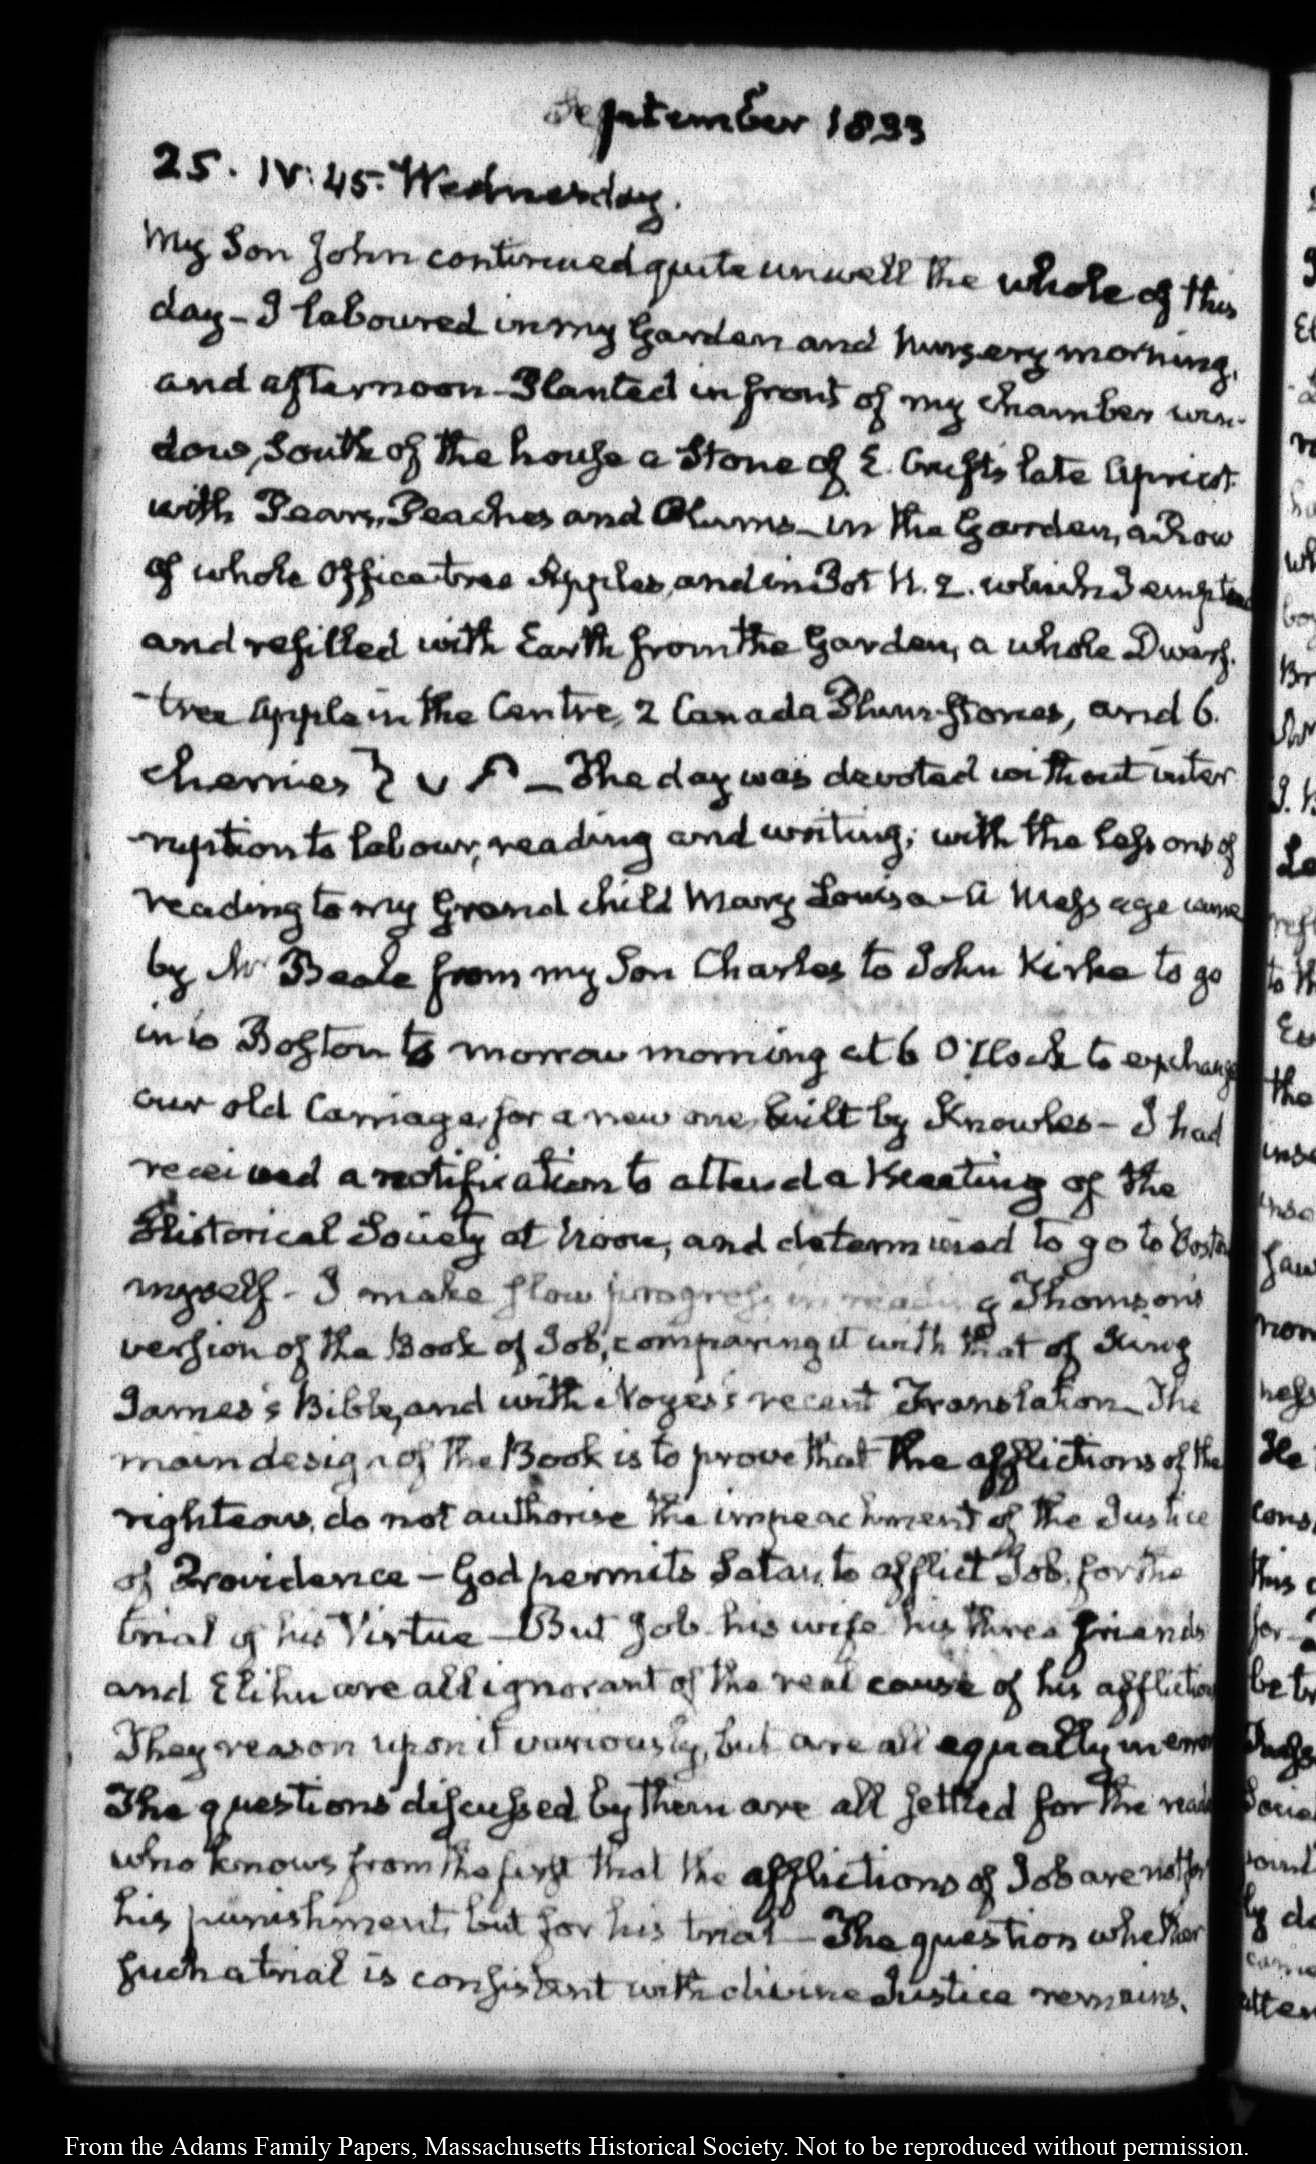 September 1833
25. IV: 45. Wednesday.
My Son John continued quite unwell the whole of this
day – I laboured in my Garden and Nursery morning,
and afternoon – Planted in front of my chamber win-
dow, South of the house a Stone of E. Crafts late Apricot
with Pears, Peaches and Plums – in the Garden, a Row
of whole Office tree Apples, and in Pot N. 2. which I emptied
and refilled with Earth from the Garden, a whole Dwarf.
-tree apple in the Centre, 2 Canada Plum stones, and 6.
cherries – The day was devoted without inter
-ruption to labour, reading and writing; with the lessons of
reading to my Grand child Mary Louisa – A Message came
by Mr Beale from my Son Charles to John Kirke to go
into Boston to morrow morning at 6 O'Clock to exchange
our old Carriage, for a new one, built by Knowles – I had
received a notification to attend a Meeting of the
Historical Society at Noon, and determined to go to Boston
myself – I make slow progress in reading Thomson's
version of the Book of Job, comparing it with that of King
James's Bible, and with Noyes's recent Translation – The
main design of the Book is to prove that the afflictions of the
righteous, do not authorise the impeachment of the Justice
of Providence – God permits Satan, to afflict Job, for the
trial of his Virtue – But Job his wife his three friends
and Elihu are all ignorant of the real cause of his affliction
They reason upon it variously, but are all equally in error
The questions discussed by them are all settled for the reader
who knows from the first that the afflictions of Job are not for
his punishment, but for his trial – The question whether
such a trial is consistent with divine Justice remains.
From the Adams Family Papers, Massachusetts Historical Society. Not to be reproduced without permission.